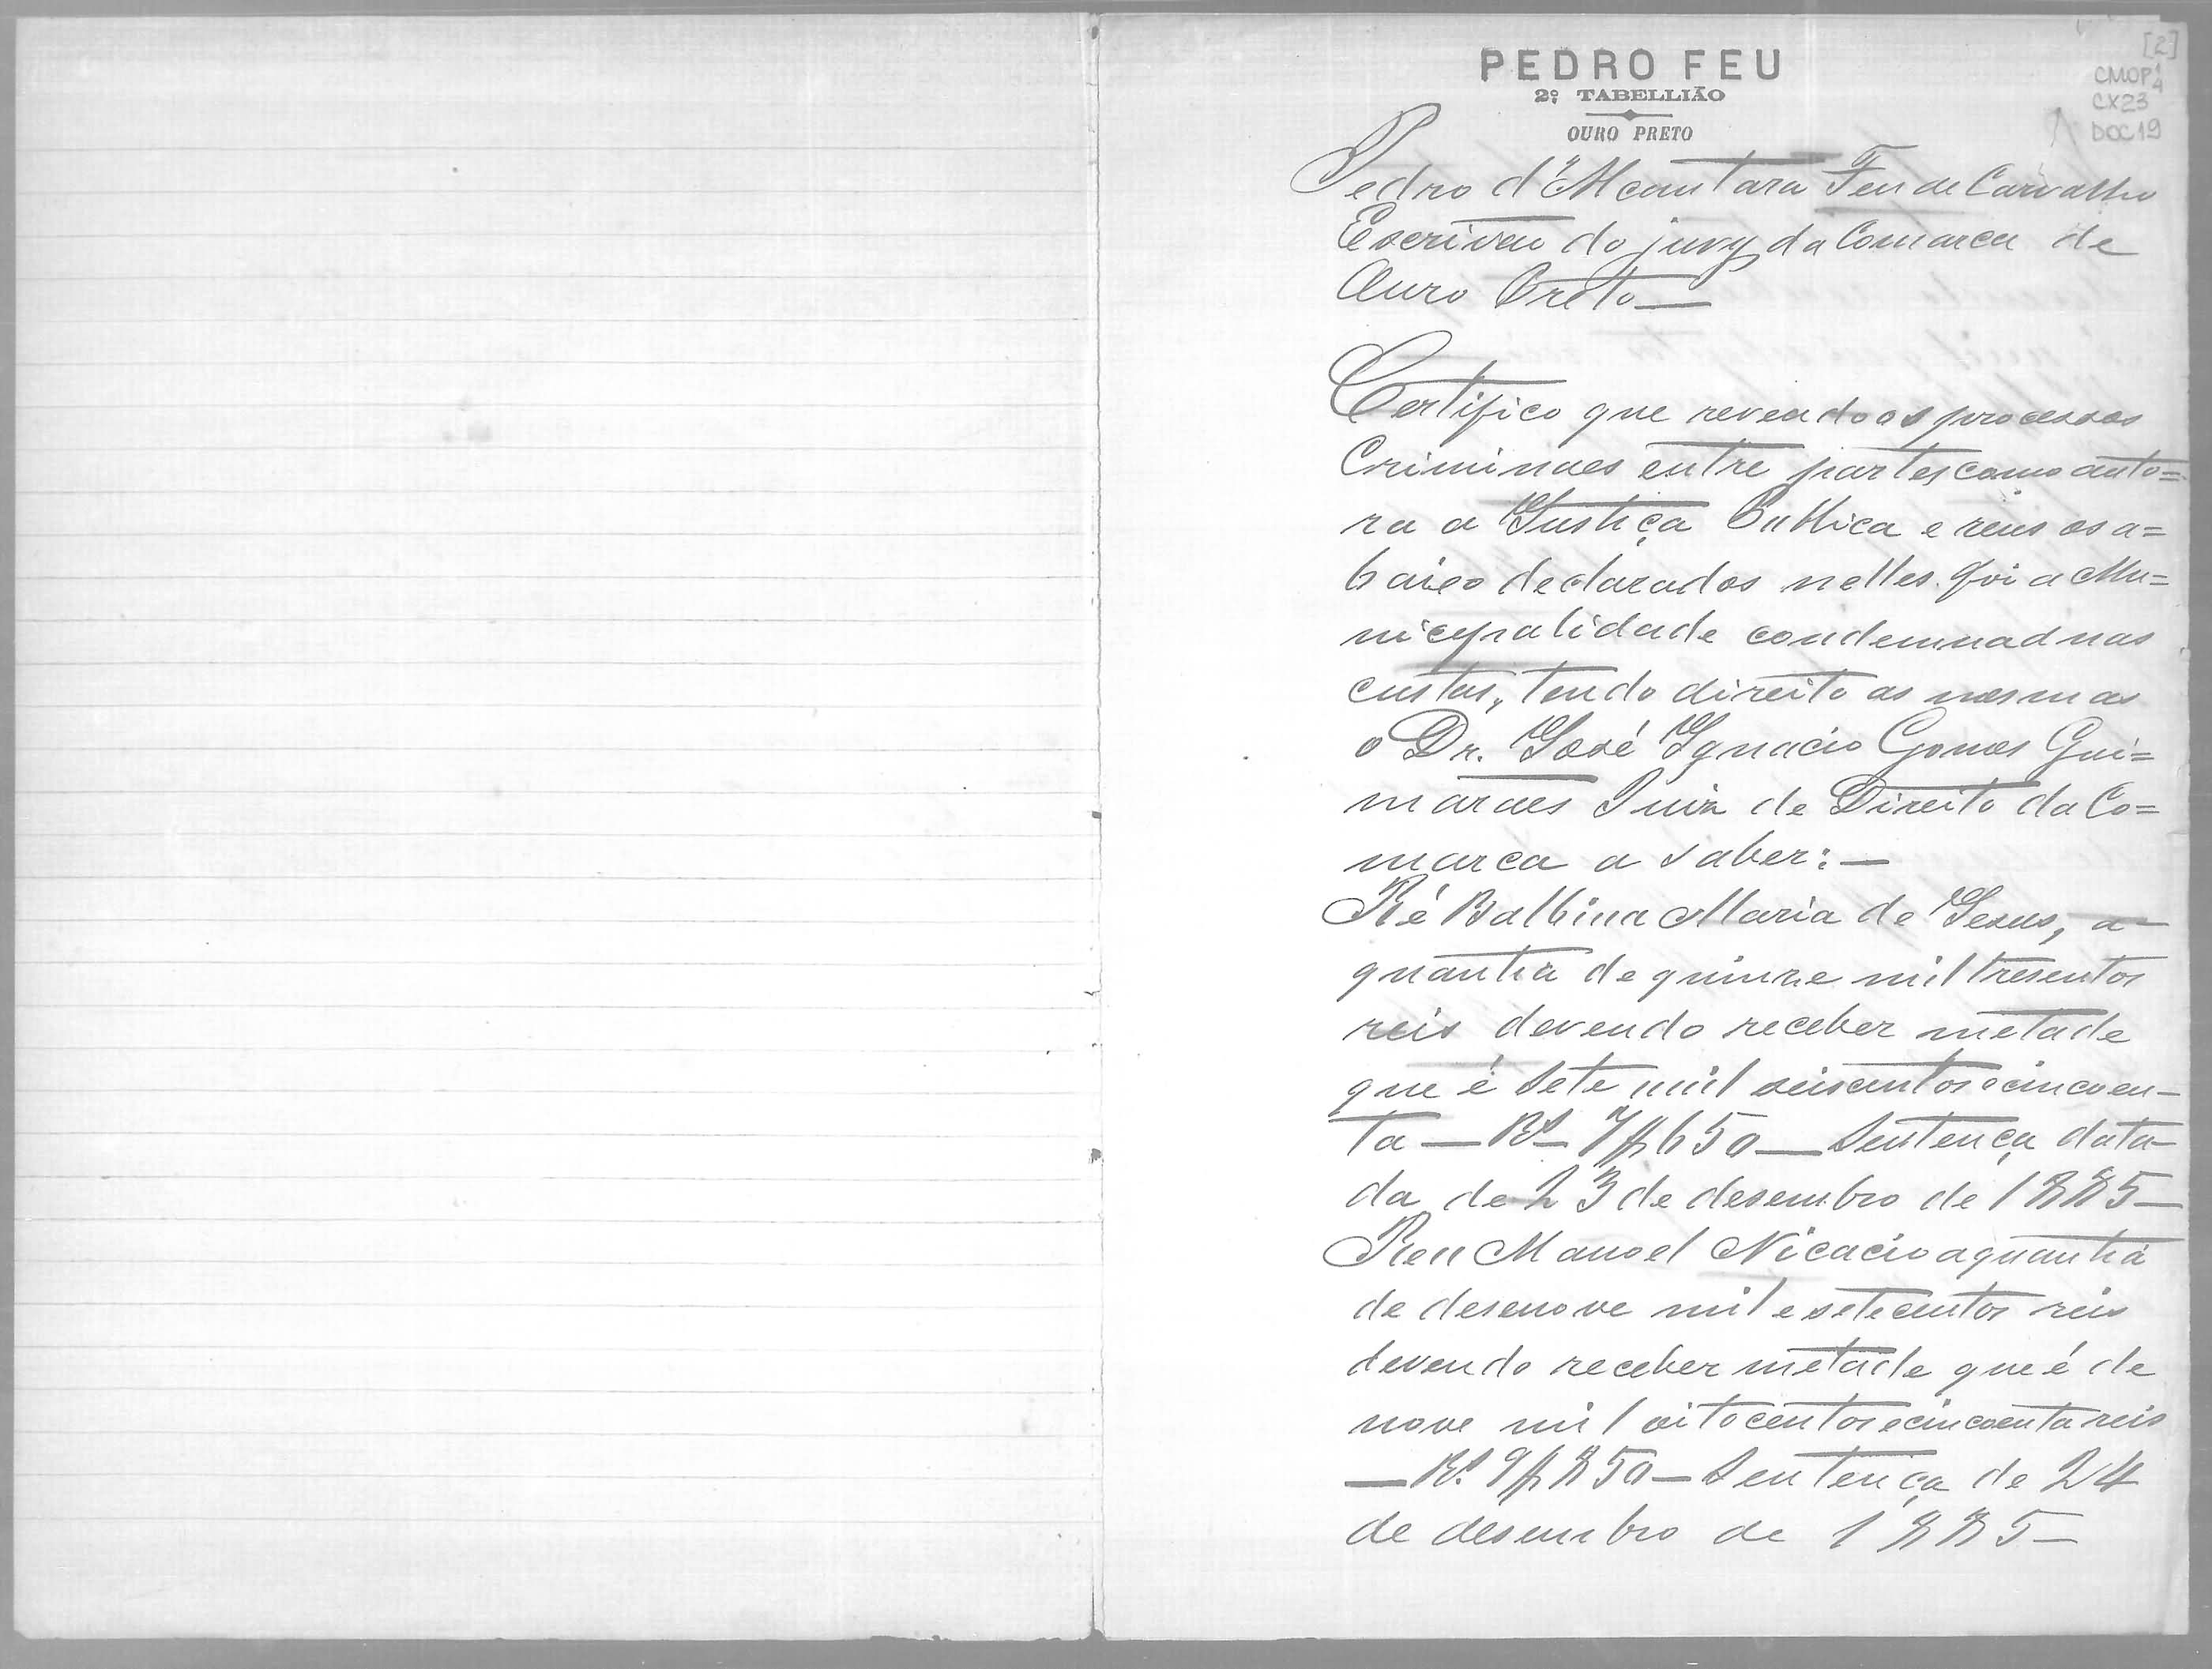 PEDRO FEU
2º TABELLIÃO
OURO PRETO
[2]
CMOP 1/4
CX23
DOC19
Pedro d'Alcantara Feu de Carvalho
Escrivão do jury da Comarca de
Ouro Preto—
Certifico que revendo os processos
Criminaes entre partes como auto=
ra a Justiça Publica e reus os a=
baixo declarados nelles foi a Mu=
nicipalidade condemnad nas
custas, tendo direito as mesmas
o Dr. José Ignacio Gomes Gui=
marães Juiz de Direito da Co=
marca a saber:—
Ré Balbina Maria de Jesus, a—
quantia de quinze mil tresentos
reis devendo receber metade
que é sete mil seiscentos e cincoen—
ta — Rs— 7$650 — Sentença data—
da de 23 de desembro de 1885—
Reu Manoel Nicacio a quantia
de desenove mil e setecentos reis
devendo receber metade que é de
nove mil oitocentos e cincoenta reis
— Rs. 9$850 — Sentença de 24
de desembro de 1885—